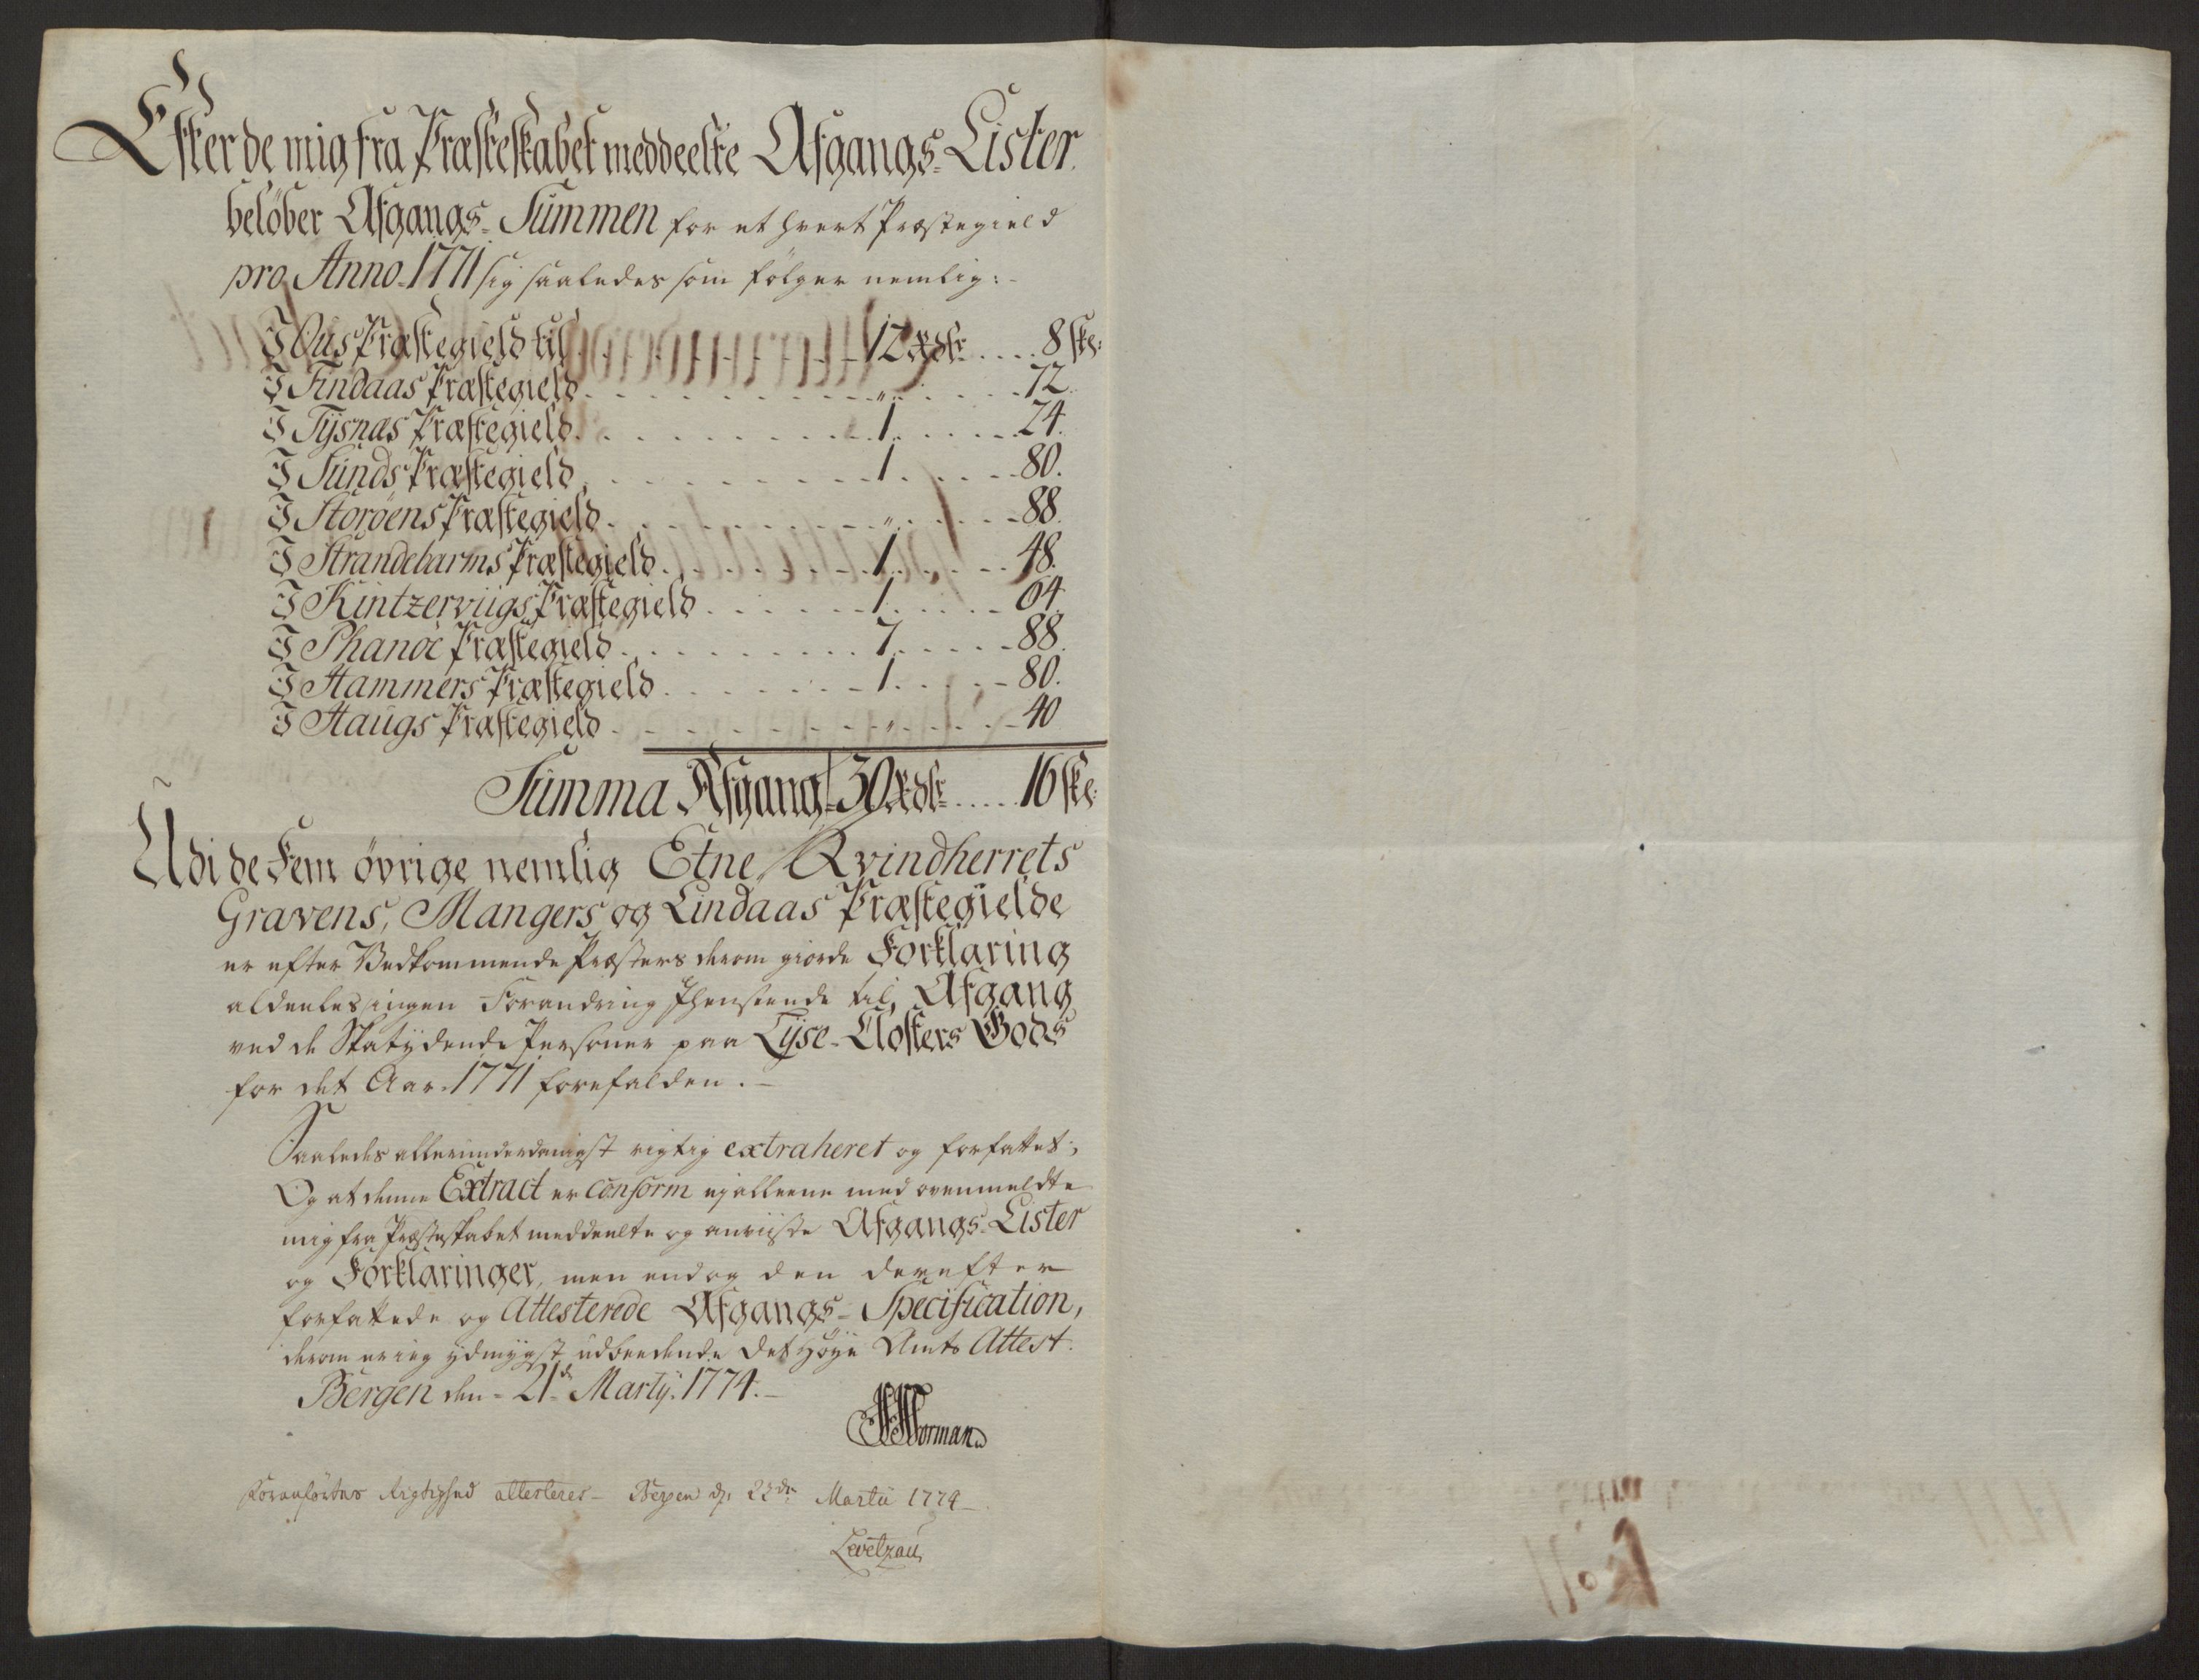 Efter de mig fra Præsteskabet meddeelte Afgangs-Lister
belöber Afgangs-Summen for et hvert Præstegield
pro Anno 1771 sig saaledes som fölger nemlig:-
I Ous Præstegield til 12 Rdlr 8 sk:
I Findaas Præstegield " 72.
I Tÿsnæs Præstegield 1 24.
I Sunds Præstegield 1 80.
I Storöens Præstegield " 88.
I Strandebarms Præstegield 1 48.
I Kintzerviigs Præstegield 1 64.
I Phanöe Præstegield 7 88.
I Hammers Præstegield 1 80.
I Haugs Præstegield " 40
Summa Afgang 30 Rdlr 16 sk:
Udi de Fem övrige nemlig Etne, Kvindherrets
Gravens, Mangers og Lindaas Præstegielde
er efter Vedkommende Præsters derom giorde Forklaring
aldeeles ingen Forandring henseende til Afgang
ved de Skatÿdende Personer paa Lÿse-Closters Gods
for det Aar 1771 forefalden.-
Saaledes allerunderdanigst rigtig extraheret og forfattet;
Og at denne Extract er conform ej alleene med ovenmeldte
mig fra Præsteskabet meddeelte og anviiste Afgangs-Lister
og Forklaringer, men endog den derefter
forfattede og Attesterede Afgangs-Specification,
derom er ieg ÿdmygst udbeedende Det Höye Amts Attest.
Bergen den 21de Martij. 1774.-
Norman
Foranförtes Rigtighed attesteres - Bergen d: 22de Martii 1774-
Levetzau